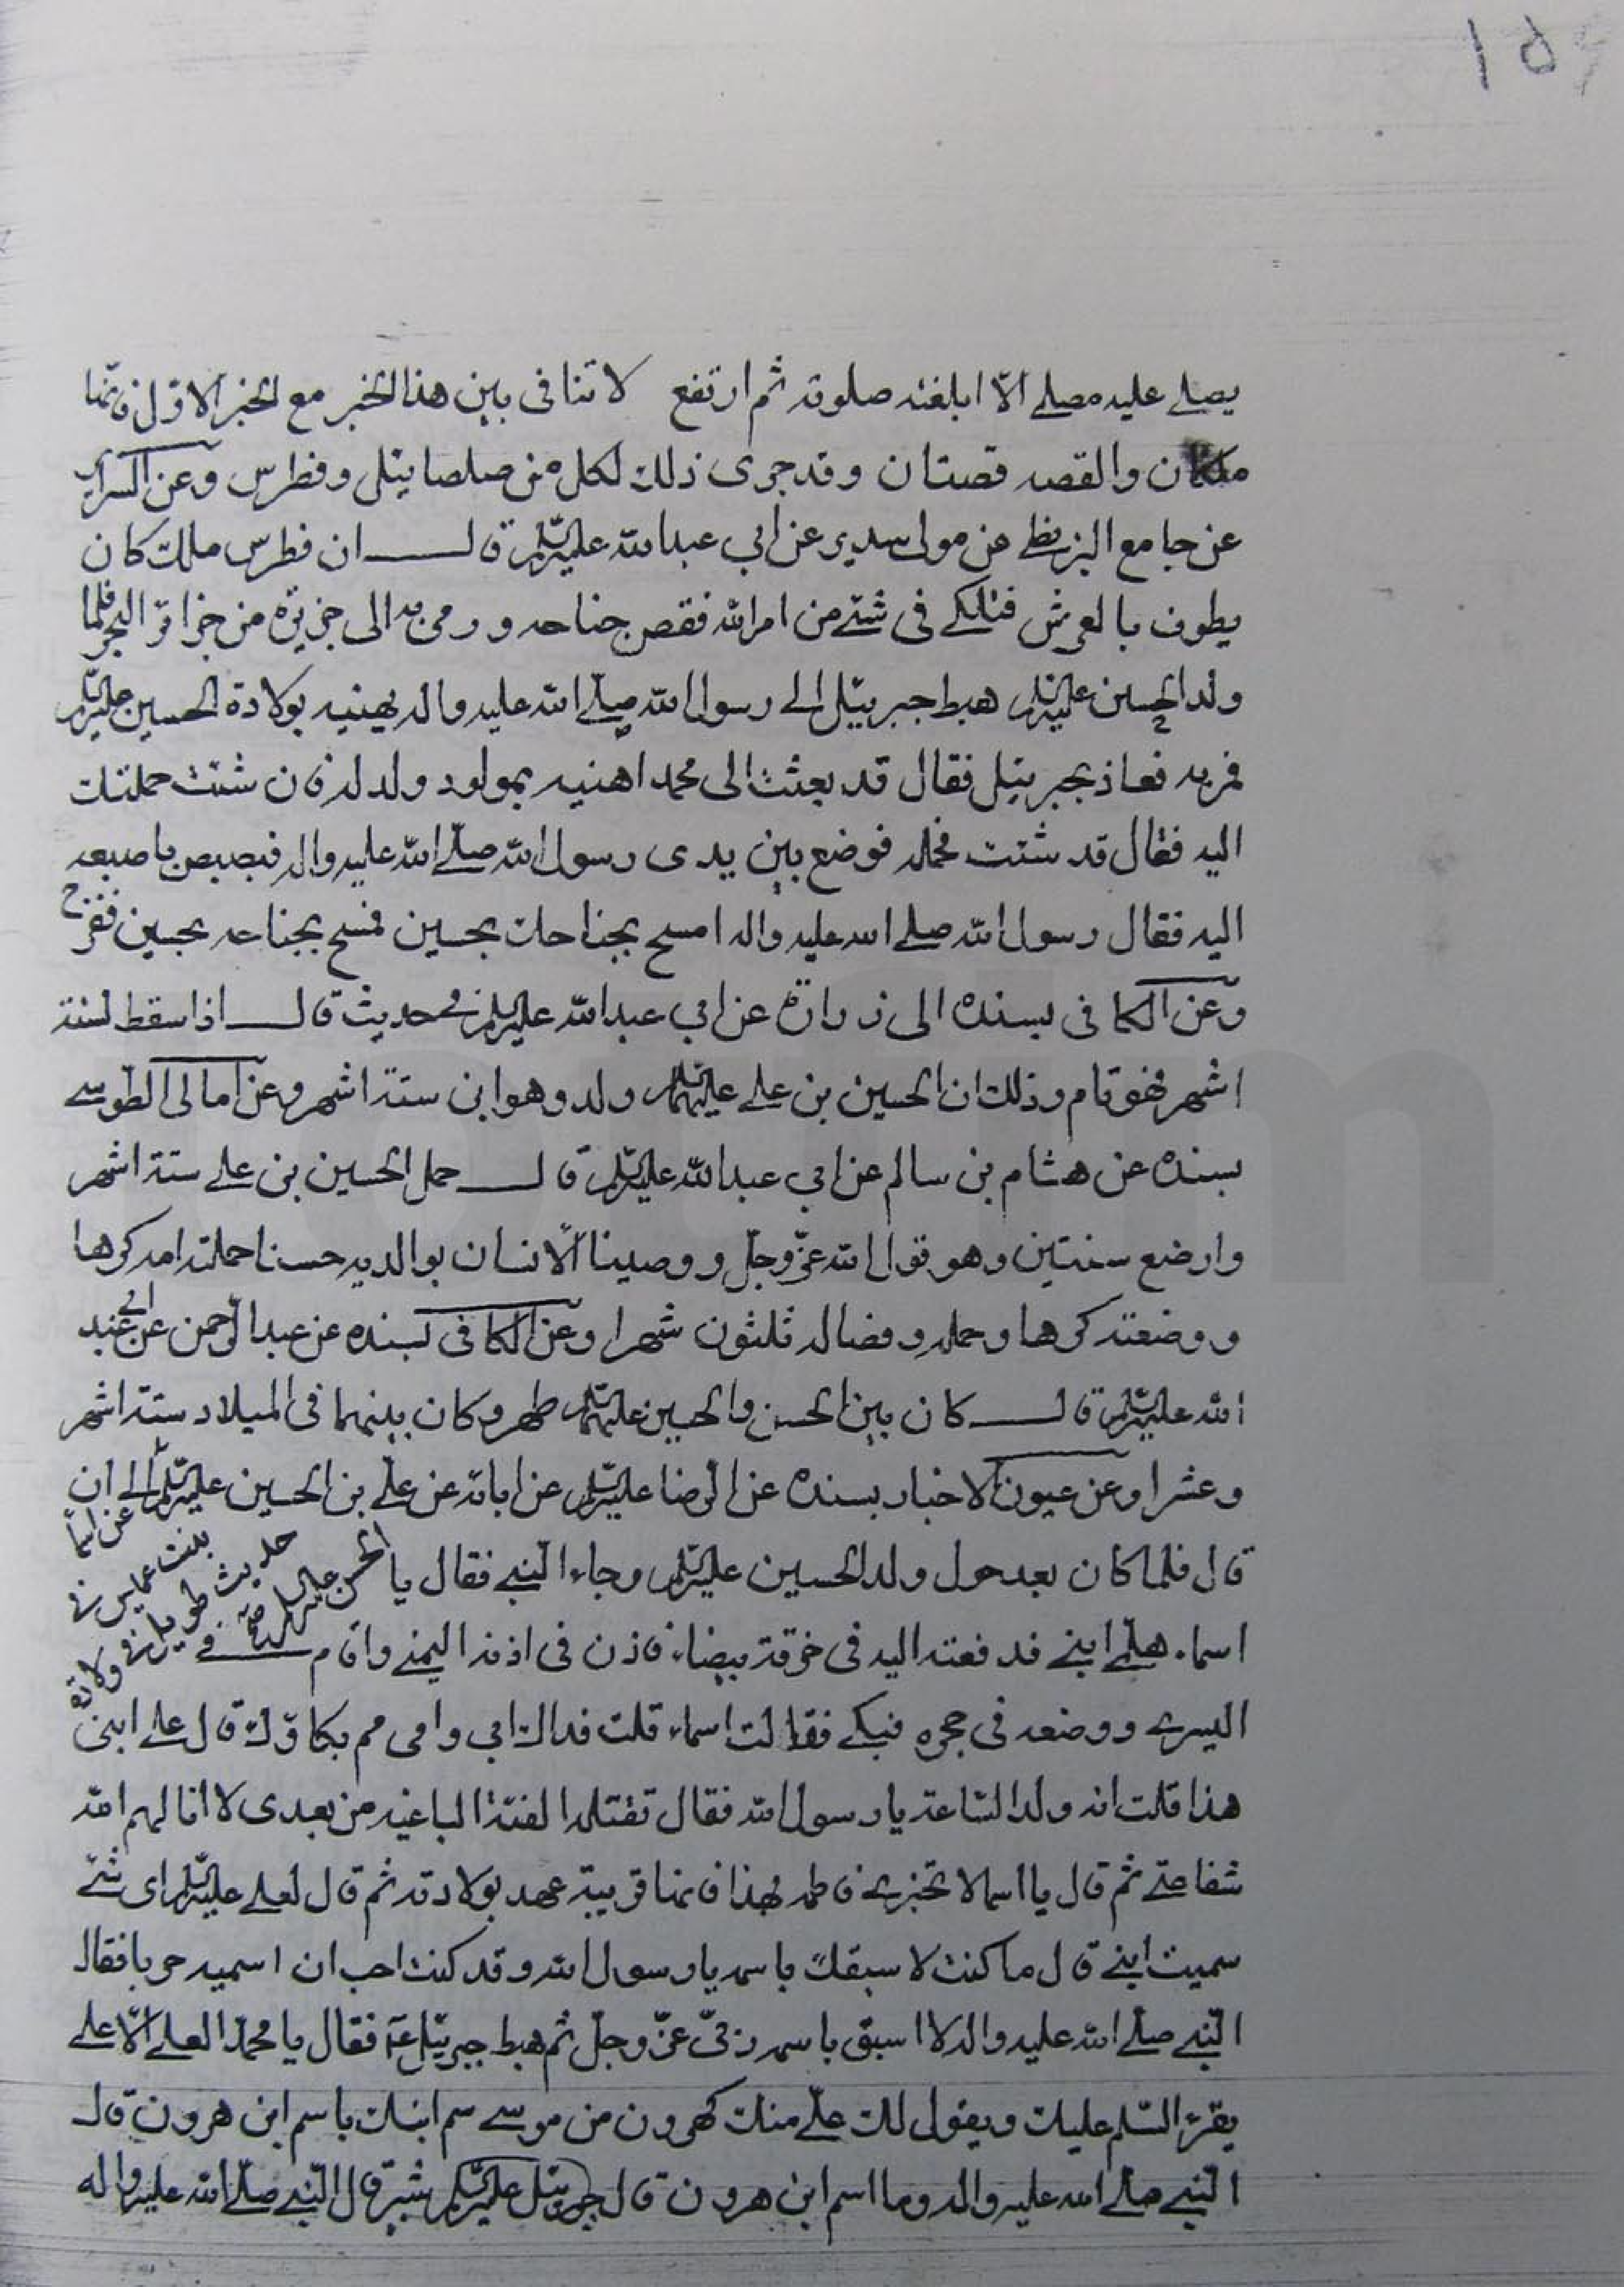 ١٥
يصلے عليه مصلے الّا ابلغته صلوته ثم ارتفع لا تنافى بين هذا الخبر مع الخبر الاوّل فانّهما
ملكان والقصه قصتان وقد جرى ذلك لكل من صلصائيل وفطرس وعن السرائر
عن جامع البزنطے عن مولى سدير عن ابي عبد الله عليه السّلم قال ان فطرس ملك كان
يطوف بالعرش فتلكے فى شئ من امر الله فقص جناحه ورمى به الى جزيرة من جزائر البحر فلما
ولد الحسين عليه السّلم هبط جبرئيل الے رسول الله صلّے الله عليه واله يهنيه بولادة الحسين عليه السّلم
فمر به فعاذ بجبرئيل فقال قد بعثت الى محمد اهنيه بمولود ولد له فان شئت حملتك
اليه فقال قد شئت فحمله فوضع بين يدى رسول الله صلّے الله عليه واله فبصبص باصبعه
اليه فقال رسول الله صلے الله عليه واله امسح بجناحك بحسين فمسح بجناحه بحسين فعرج
وعن الكافى بسنده الى زرارة عن ابي عبد الله عليه السّلم فے حديث قال اذا سقط لستة
اشهر فهو تام وذلك ان الحسين بن علے عليهما السّلم ولد وهو ابن ستة اشهر وعن امالى الطوسے
بسنده عن هشام بن سالم عن ابي عبد الله عليه السّلم قال حمل الحسين بن علے ستة اشهر
وارضع سنتين وهو قول الله عزّ وجلّ ووصينا الّانسان بوالديه حسنا حملته امه كرها
ووضعته كرها وحمله وفصاله ثلثون شهرا وعن الكافى بسنده عن عبد الرّحمن عن ابي عبد
الله عليه السّلم قال كان بين الحسن والحسين عليهما السّلم طهر وكان بينهما فى الميلاد ستة اشهر
وعشرا وعن عيون الاخبار بسنده عن الرضا عليه السّلم عن ابائه عن علے بن الحسين عليه السّلم الے ان
عن اسما بنت عميس فى حديث طويل فى ولادة الحسن عليه السلم
قال فلما كان بعد حول ولد الحسين عليه السّلم وجاء النّبے فقال يا
اسماء هلمّے ابنے فدفعته اليه فى خرقة بيضاء فاذن فى اذنه اليمنے واقام فے
اليسرے ووضعه فى حجره فبكے فقالت اسماء قلت فداك ابي وامى مم بكاؤك قال علے ابنى
هذا قلت انه ولد السّاعة يا رسول الله فقال تقتله الفئة الباغية من بعدى لا انالهم الله
شفاعتے ثم قال يا اسما لا تخبرے فاطمه بهذا فانها قريبة عهد بولادته ثم قال لعلے عليه السّلم اى شئ
سميت ابنے قال ما كنت لا سبقك باسمه يا رسول الله وقد كنت احب ان اسميه حربا فقال
النّبے صلّے الله عليه واله لا اسبق باسمه ربّى عزّ وجلّ ثم هبط جبرئيل عۤ فقال يا محمد العلے الّا علے
يقرئ السّلم عليك ويقول لك علّے منك كهرون من موسے سم ابنك باسم ابن هرون قال
النّبے صلّے الله عليه واله وما اسم ابن هرون قال جبرئيل عليه السّلم شبّر قال النّبے صلّے الله عليه واله